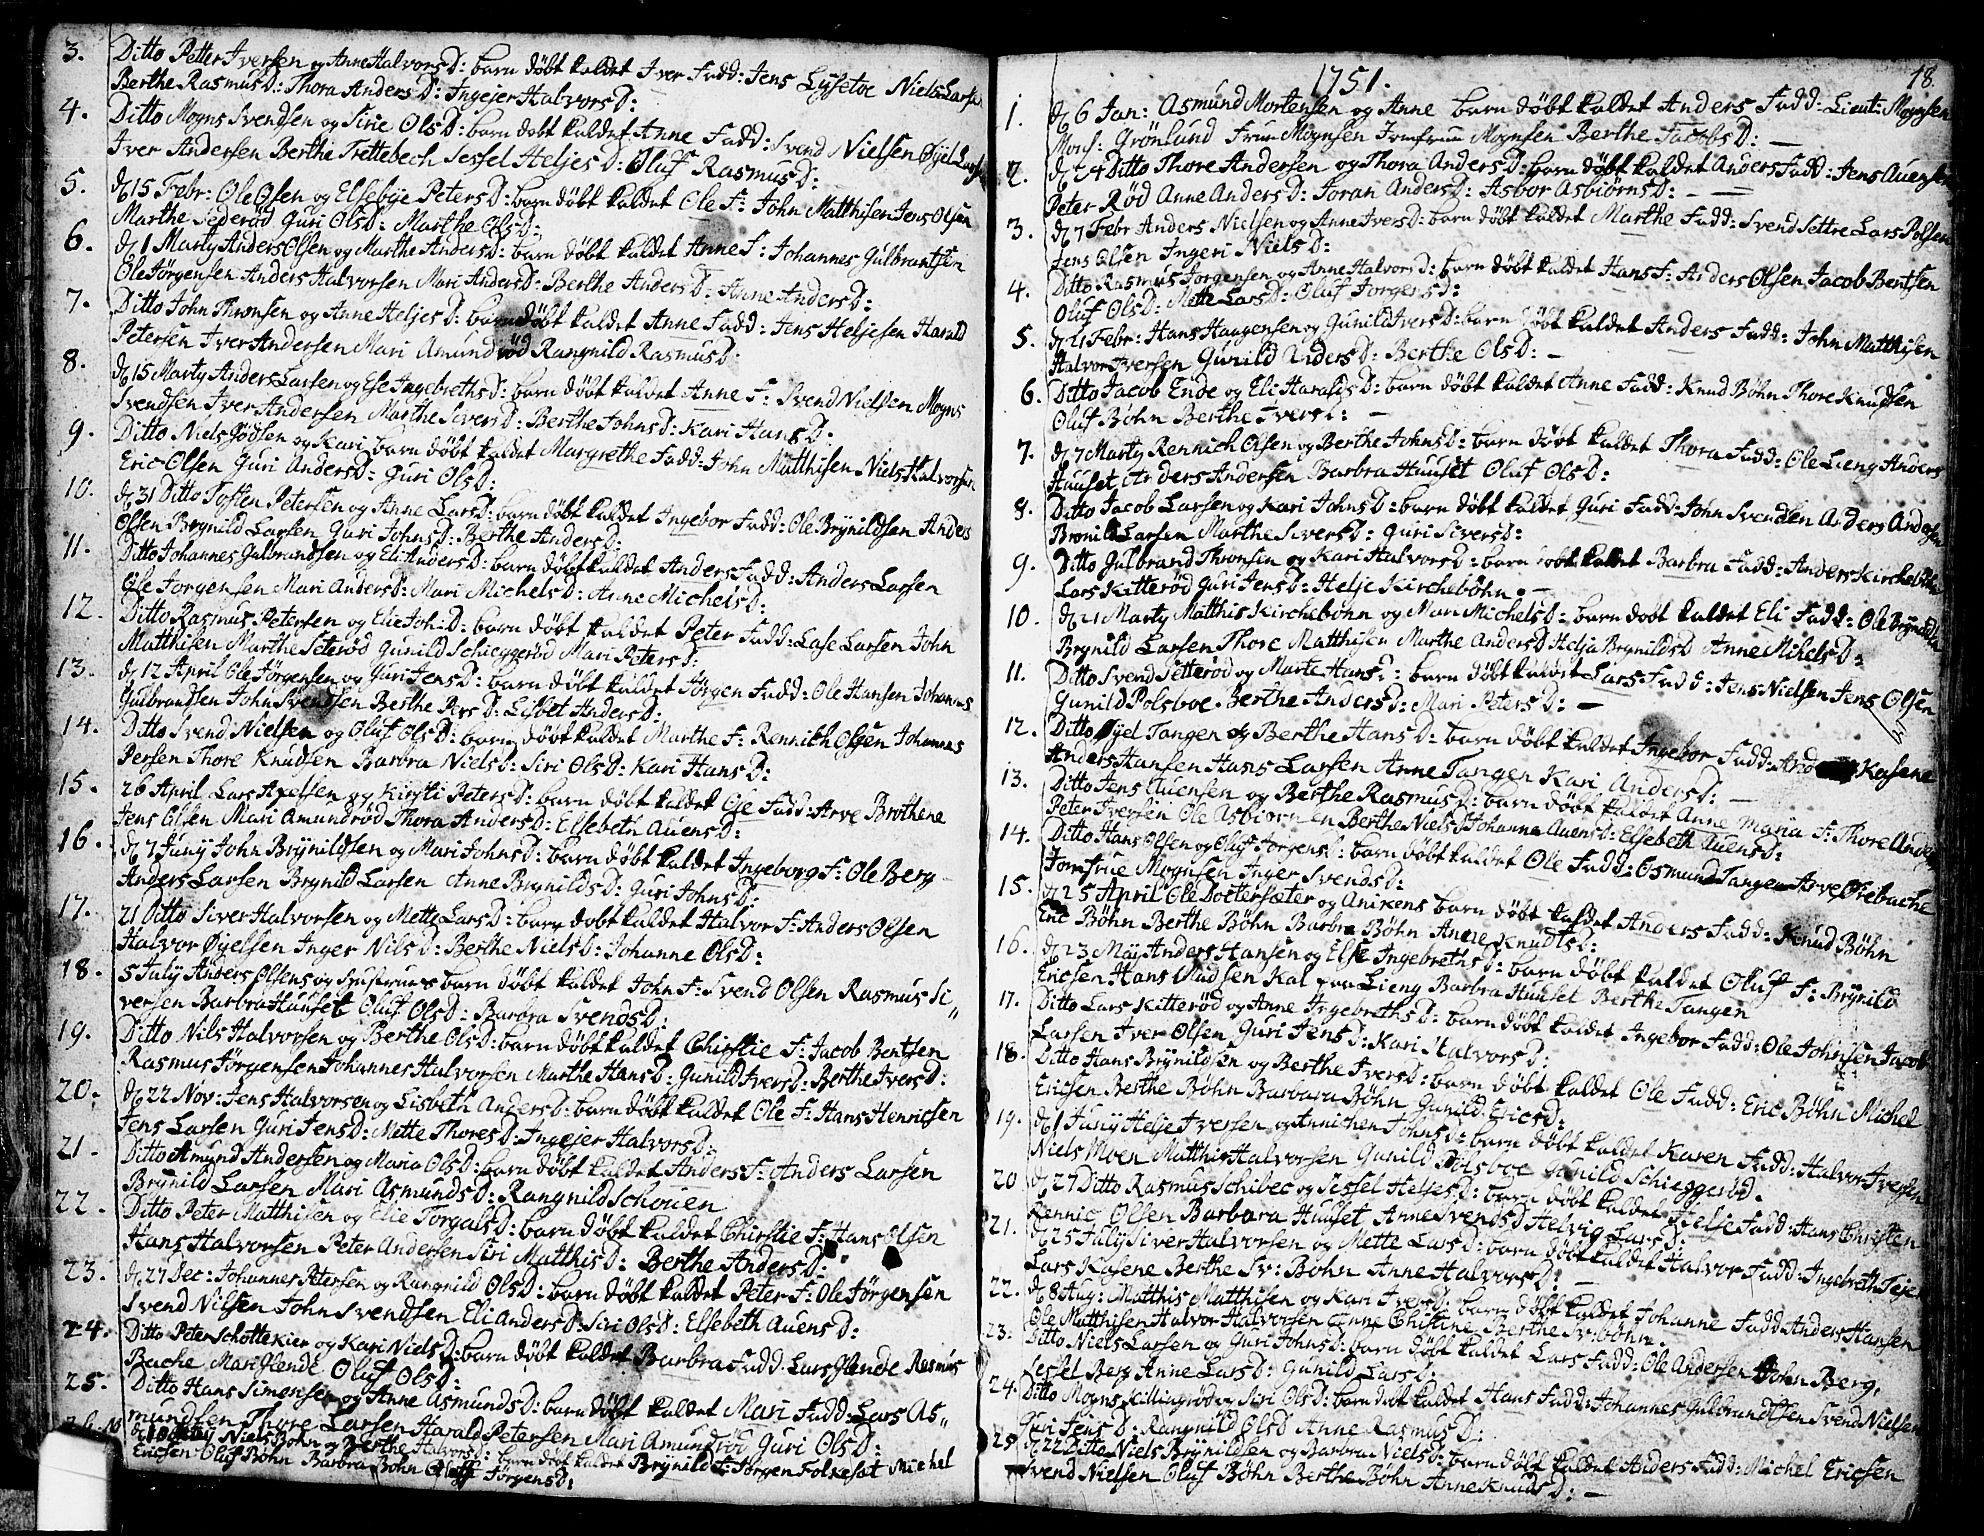 3. Ditto Petter Iversen og Anne HalvorsD: barn døbt kaldet Iver Fadd: Jens Lysetoe Niels Larsen
Berthe RasmusD: Thora AndersD: Ingejer HalvorsD:
4. Ditto Mogns Svendsen og Sirie OlsD: barn døbt kaldet Anne Fadd: Svend Nielsen Øyel Larsen
Iver Andersen Berthe Trettebech Sessel HeljesD: Oluf RasmusD:
5. d 15 Febr: Ole Olsen og Elsebye PetersD: barn døbt kaldet Ole F: John Matthisen Jens Olsen
Marthe Sederød Guri OlsD: Marthe OlsD:
6. d 1 Marty Anders Olsen og Marthe AndersD: barn døbt kaldet Anne F: Johannes Gulbrantsen
Ole Jørgensen Anders Halvorsen Mari AndersD: Berthe AndersD: Anne AndersD:
7. Ditto John Thronsen og Anne HeljesD: barn døbt kaldet Anne Fadd: Jens Heljesen Harald
Petersen Iver Andersen Mari Amundrød Rangnild RasmusD:
8. d 15 Marty Anders Larsen og Else IngebrethsD: barn døbt kaldet Anne F: Svend Nielsen Mogns
Svendsen Iver Andersen Marthe SiversD: Berthe JohnsD: Kari HansD:
9. Ditto Niels Jødsen og Kari barn døbt kaldet Margrethe Fadd: John Matthisen Niels Halvorsen
Eric Olsen Guri AndersD: Guri OlsD:
10. d 31 Ditto Tosten Petersen og Anne LarsD: barn døbt kaldet Ingebor Fadd: Ole Brynildsen Anders
Olsen Brynild Larsen Guri JohnsD: Berthe AndersD:
11. Ditto Johannes Gulbrandsen og Eli AndersD: barn døbt kaldet Anders Fadd: Anders Larsen
Ole Jorgensen Mari AndersD: Mari MichelsD: Anne MichelsD:
12. Ditto Rasmus Petersen og Elie JohnD: barn døbt kaldet Peter Fadd: Lase Larsen John
Matthisen Marthe Seterød Gunild Schieggerød Mari PetersD:
13. d 12 April Ole Jørgensen og Guri JensD: barn døbt kaldet Jørgen Fadd: Ole Hansen Johannes
Gulbrandsen John Svendsen Berthe PersD: Lisbet AndersD:
14. Ditto Svend Nielsen og Oluf OlsD: barn døbt kaldet Marthe F: Rennich Olsen Johannes
Persen Thore Knudsen Barbra NielsD: Siri OlsD: Kari HansD:
15. 26 April Lars Axelsen og Kirsti PetersD: barn døbt kaldet Ole Fadd: Arve Brøthene
Jens Olsen Mari Amundrød Thora AndersD: Elsebeth AuensD:
16. d 7 Juny John Brynildsen og Mari JohnsD: barn døbt kaldet Ingeborg F: Ole Berg
Anders Larsen Brynild Larsen Anne BrynildsD: Guri JohnsD:
17. 21 Ditto Siver Halvorsen og Mette LarsD: barn døbt kaldet Halvor F: Anders Olsen
Halvor Øyelsen Inger NilsD: Berthe NielsD: Johanne OlsD:
18. 5 July Anders Olsens og barn døbt kaldet John F: Svend Olsen Rasmus Si„
versen Barbra Huuset Oluf OlsD: Barbra SvendsD:
19. Ditto Nils Halvorsen og Berthe OlsD: barn døbt kaldet Chirstie F: Jacob Bentsen
Rasmus Jörgensen Johannes Halvorsen Marthe HansD: Gunild IversD: Berthe IversD:
20. d 22 Nov: Jens Halvorsen og Lisbeth AndersD: barn døbt kaldet Ole F: Hans Henricsen
Jens Larsen Guri JensD: Mette ThoresD: Ingejer HalvorsD:
21. Ditto Amund Andersen og Maria OlsD: barn døbt kaldet Anders F: Anders Larsen
Brynild Larsen Mari AsmundsD: Rangnild Schouen
22. Ditto Peter Matthisen og Elie TorgalsD: barn døbt kaldet Chirstie F: Hans Olsen
Hans Halvorsen Peter Andersen Siri MatthisD: Berthe AndersD:
23. d 27 Dec: Johannes Petersen og Rangnild OlsD: barn døbt kaldet Peter F: Ole Jörgensen
Svend Nilsen John Svendsen Eli AndersD: Siri OlsD: Elsebeth AuensD:
24. Ditto Peter Schottekier og Kari NielsD: barn døbt kaldet Barbra Fadd: Lars Hende Rasmus
Bache Mari Hende Oluf OlsD:
25. Ditto Hans Simonsen og Anne AsmundsD: barn døbt kaldet Mari Fadd: Lars As„
mundsen Thore Larsen Harald Petersen Mari Amundrød Guri OlsD:
Niels Bøhn og Berthe HalvorsD: barn døbt kaldet Brynild F: Jørgen Folkesat Michel
Ericsen Oluf Bøhn Barbra Bøhn Oluff JörgensD:
1751. 18.
1. d 6 Jan: Asmund Mortensen og Anne barn døbt kaldet Anders Fadd: Lieut: Mognsen
Mons: Grönlund Frue Mognsen Jomfrue Mognsen Berthe JacobsD: —
2. d 24 Ditto Thore Andersen og Thora AndersD: barn døbt kaldet Anders Fadd: Jens Auensen
Peter Rød Anne AndersD: Joran AndersD: Asbor AsbiörnsD: —
3. d 7 Febr Anders Nielsen og Anne IversD: barn døbt kaldet Marthe Fadd: Svend Settre Lars Polsen
Jens Olsen Ingeri NielsD:
4. Ditto Rasmus Jorgensen og Anne HalvorsD: barn døbt kaldet Hans F: Anders Olsen Jacob Bentsen
Oluf OlsD: Mette LarsD: Oluf JorgensD:
5. d 21 Febr: Hans Haagensen og Gunild IversD: barn døbt kaldet Anders Fadd: John Matthisen
Halvor Iversen Gunild AndersD: Berthe OlsD: —
6. Ditto Jacob Ende og Eli HaraldsD: barn døbt kaldet Anne Fadd: Knud Bøhn Thore Knudsen
Oluf Bøhn Berthe Ivers: —
7. d 7 Marty Rennich Olsen og Berthe JohnsD: barn døbt kaldet Thora Fadd: Ole Lieng Anders
Huuset Anders Andersen Barbra Huuset Oluf OlsD:
8. Ditto Jacob Larsen og Kari JohnsD: barn døbt kaldet Guri Fadd: John Svendsen Anders Andersen
Bronild Larsen Marthe SiversD: Guri SiversD:
9. Ditto Gulbrand Thronsen og Kari HalvorsD: barn døbt kaldet Barbra Fadd: Anders Kirchebøhn
Lars Kitterød Guri JensD: Helje Kirchebøhn. —
10. d 21 Marty Matthis Kirchebøhn og Mari MichelsD: barn døbt kaldet Eli Fadd: Ole Brynildsen
Brynild Larsen Thore Matthisen Marthe AndersD Helja BrynildsD Anne MihelsD:
11. Ditto Svend Setterød og Marte HansD: barn døbt kaldet Lars Fadd: Jens Nielsen Jens Olsen
Gunild Polsboe Berthe AndersD: Mari PetersD: —
12. Ditto Øyel Tangen og Berthe HansD: barn døbt kaldet Ingebor Fadd: Kasene
Anders Hansen Hans Larsen Anne Tangen Kari AndersD: —
13. Ditto Jens Auensen og Berthe RasmusD: barn døbt kaldet Anne Maria F: Thore Anders
Peter Iversen Ole Asbiørnsen Berthe Niels Johanna AuensD: Elsebeth AuensD:
14. Ditto Hans Olsen og Oluf Jorgens: barn døbt kaldet Ole Fadd: Osmund Tangen Arve Ørebache
Jomfrue Mognsen Inger SvendsD:
15. d 25 April Ole Dottersæter og Anikens barn døbt kaldet Anders Fadd: Knud Bøhn
Eric Bøhn Berthe Bøhn Barbra Bøhn Anne KnudtsD:
16. d 23 May Anders Hansen og Else IngebrethsD: barn døbt kaldet Oluf F: Brynild
Ericsen Hans Madsen Kal paa Lieng Barbra Huuset Berthe Tangen
17. Ditto Lars Kitterød og Anne IngebrethsD: barn døbt kaldet Ingebor Fadd: Ole Johnsen Jacob
Larsen Iver Olsen Guri JensD: Kari HalvorsD:
18. Ditto Hans Brynildsen og Berthe IversD: barn døbt kaldet Ole Fadd: Eric Bøhn Michel
Ericsen Berthe Bøhn Barbara Bøhn Gunild EricsD:
19. d 1 Juny Helje Iversen og Annichen JohnsD: barn døbt kaldet Karen Fadd: Halvor Iversen
Niels Moen Matthis Halvorsen Gunild Polsboe Gunild Schieggerød.
20 d 27 Ditto Rasmus Schibec og Sessel HeljesD: barn døbt kaldet Helje Fadd: Hans Christen
Rennic Olsen Barbara Huuset Anne SvendsD Helvig LarsD:
21. d 25 July Siver Halvorsen og Mette LarsD: barn døbt kaldet Halvor Fadd: Ingebreth Teje
Lars Kasene Berthe Sv: Bøhn Anne HalvorsD: —
22. d 8 Aug: Matthis Matthisen og Kari IversD: barn døbt kaldet Johanne Fadd: Anders Hansen
Ole Matthisen Halvor Halvorsen Anne Chistine Berthe Sv: bøhn.
23. Ditto Niels Larsen og Guri JohnsD: barn døbt kaldet Lars Fadd: Ole Andersen John Berg,
Sessel Berg Anne LarsD: Gunild LarsD:
24. Ditto Mogns Killingrød og Siri OlsD: barn døbt kaldet Hans Fadd: Johannes Gulbrandsen Svend Nielsen
Guri JensD: Rangnild OlsD Anne RasmusD:
25 d 22 Ditto Niels Brynildsen og Barbra NielsD: barn døbt kaldet Anders Fadd: Michel Ericsen
Svend Nielsen Oluf Bøhn Berthe Bøhn Anne KnudsD: —